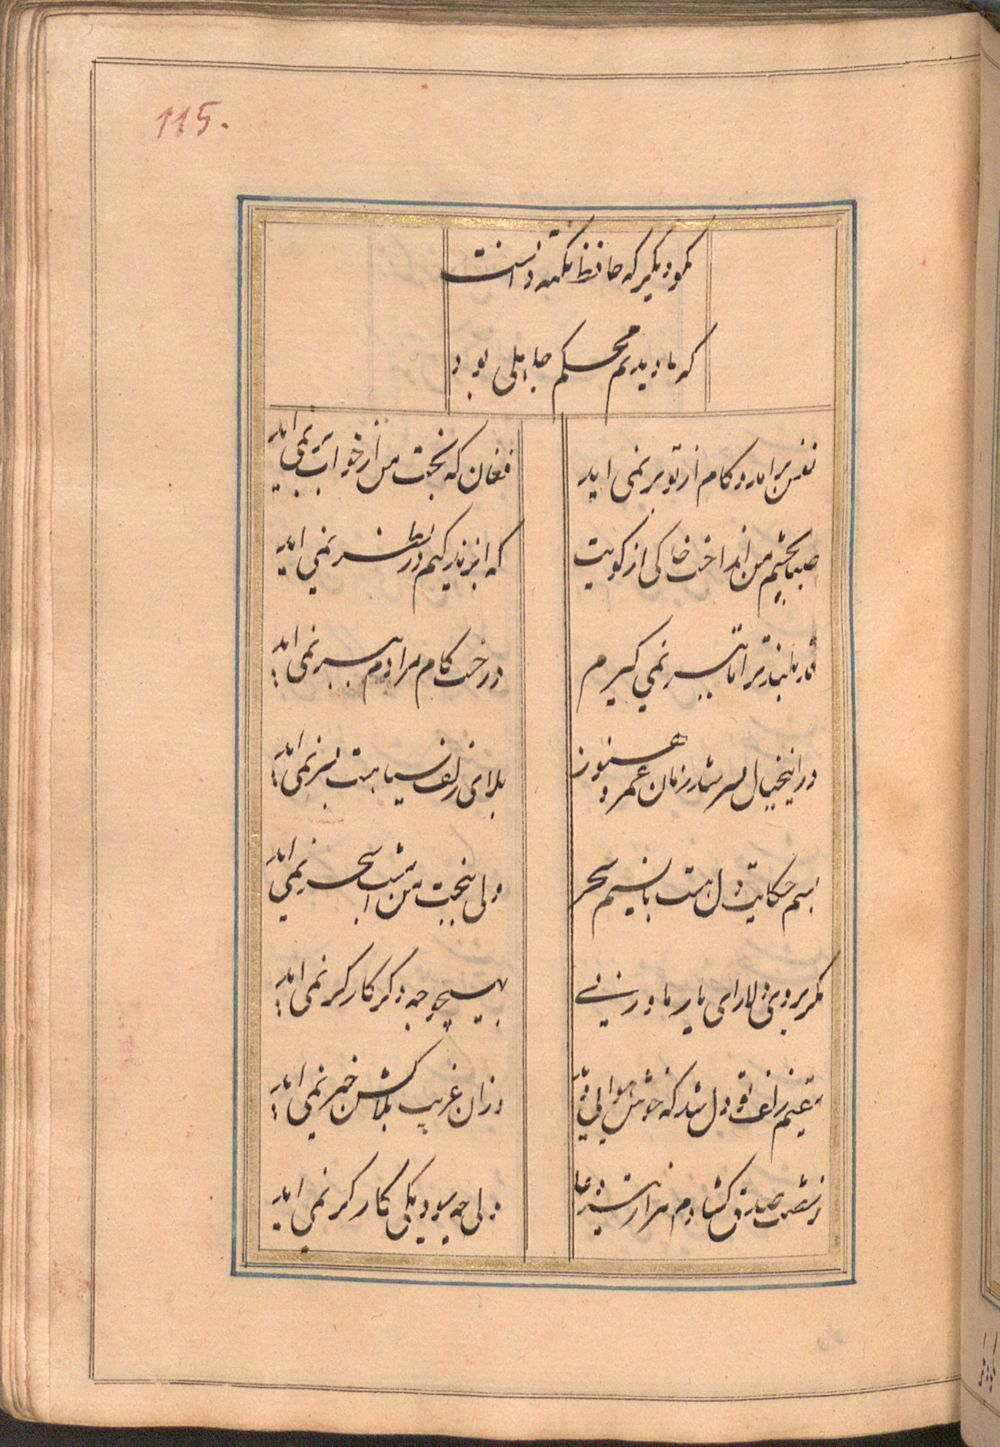 115.
مگو دیگر که حافظ نکته دانست
که ما دیدیم محکم جاهلی بود
نفس برامد و کام از تو بر نمی اید
فغان که بخت من از خواب بر نمی اید
صبا بچشم من انداخت خاکی از کویت
که اب زندگیم در نظر نمی اید
قد بلند ترا تا ببر نمی کیرم
درخت کام مرادم ببر نمی اید
درین خیال بسر شد زمان عمر و هنوز
بلای زلف سیاهت بسر نمی اید
بسم حکایت دل هست با نسیم سحر
ولی ببخت من امشب سحر نمی اید
مکر بروی دلارای یار ما ورنی
بهیچ وجه دکر کار کر نمی اید
مقیم زلف تو دل شد که خوش سوادی دید
وزان غریب بلاکش خبر نمی اید
ز شصت صدق کشادم هزار تیر دعا
ولی چه سود یکی کار کر نمی اید